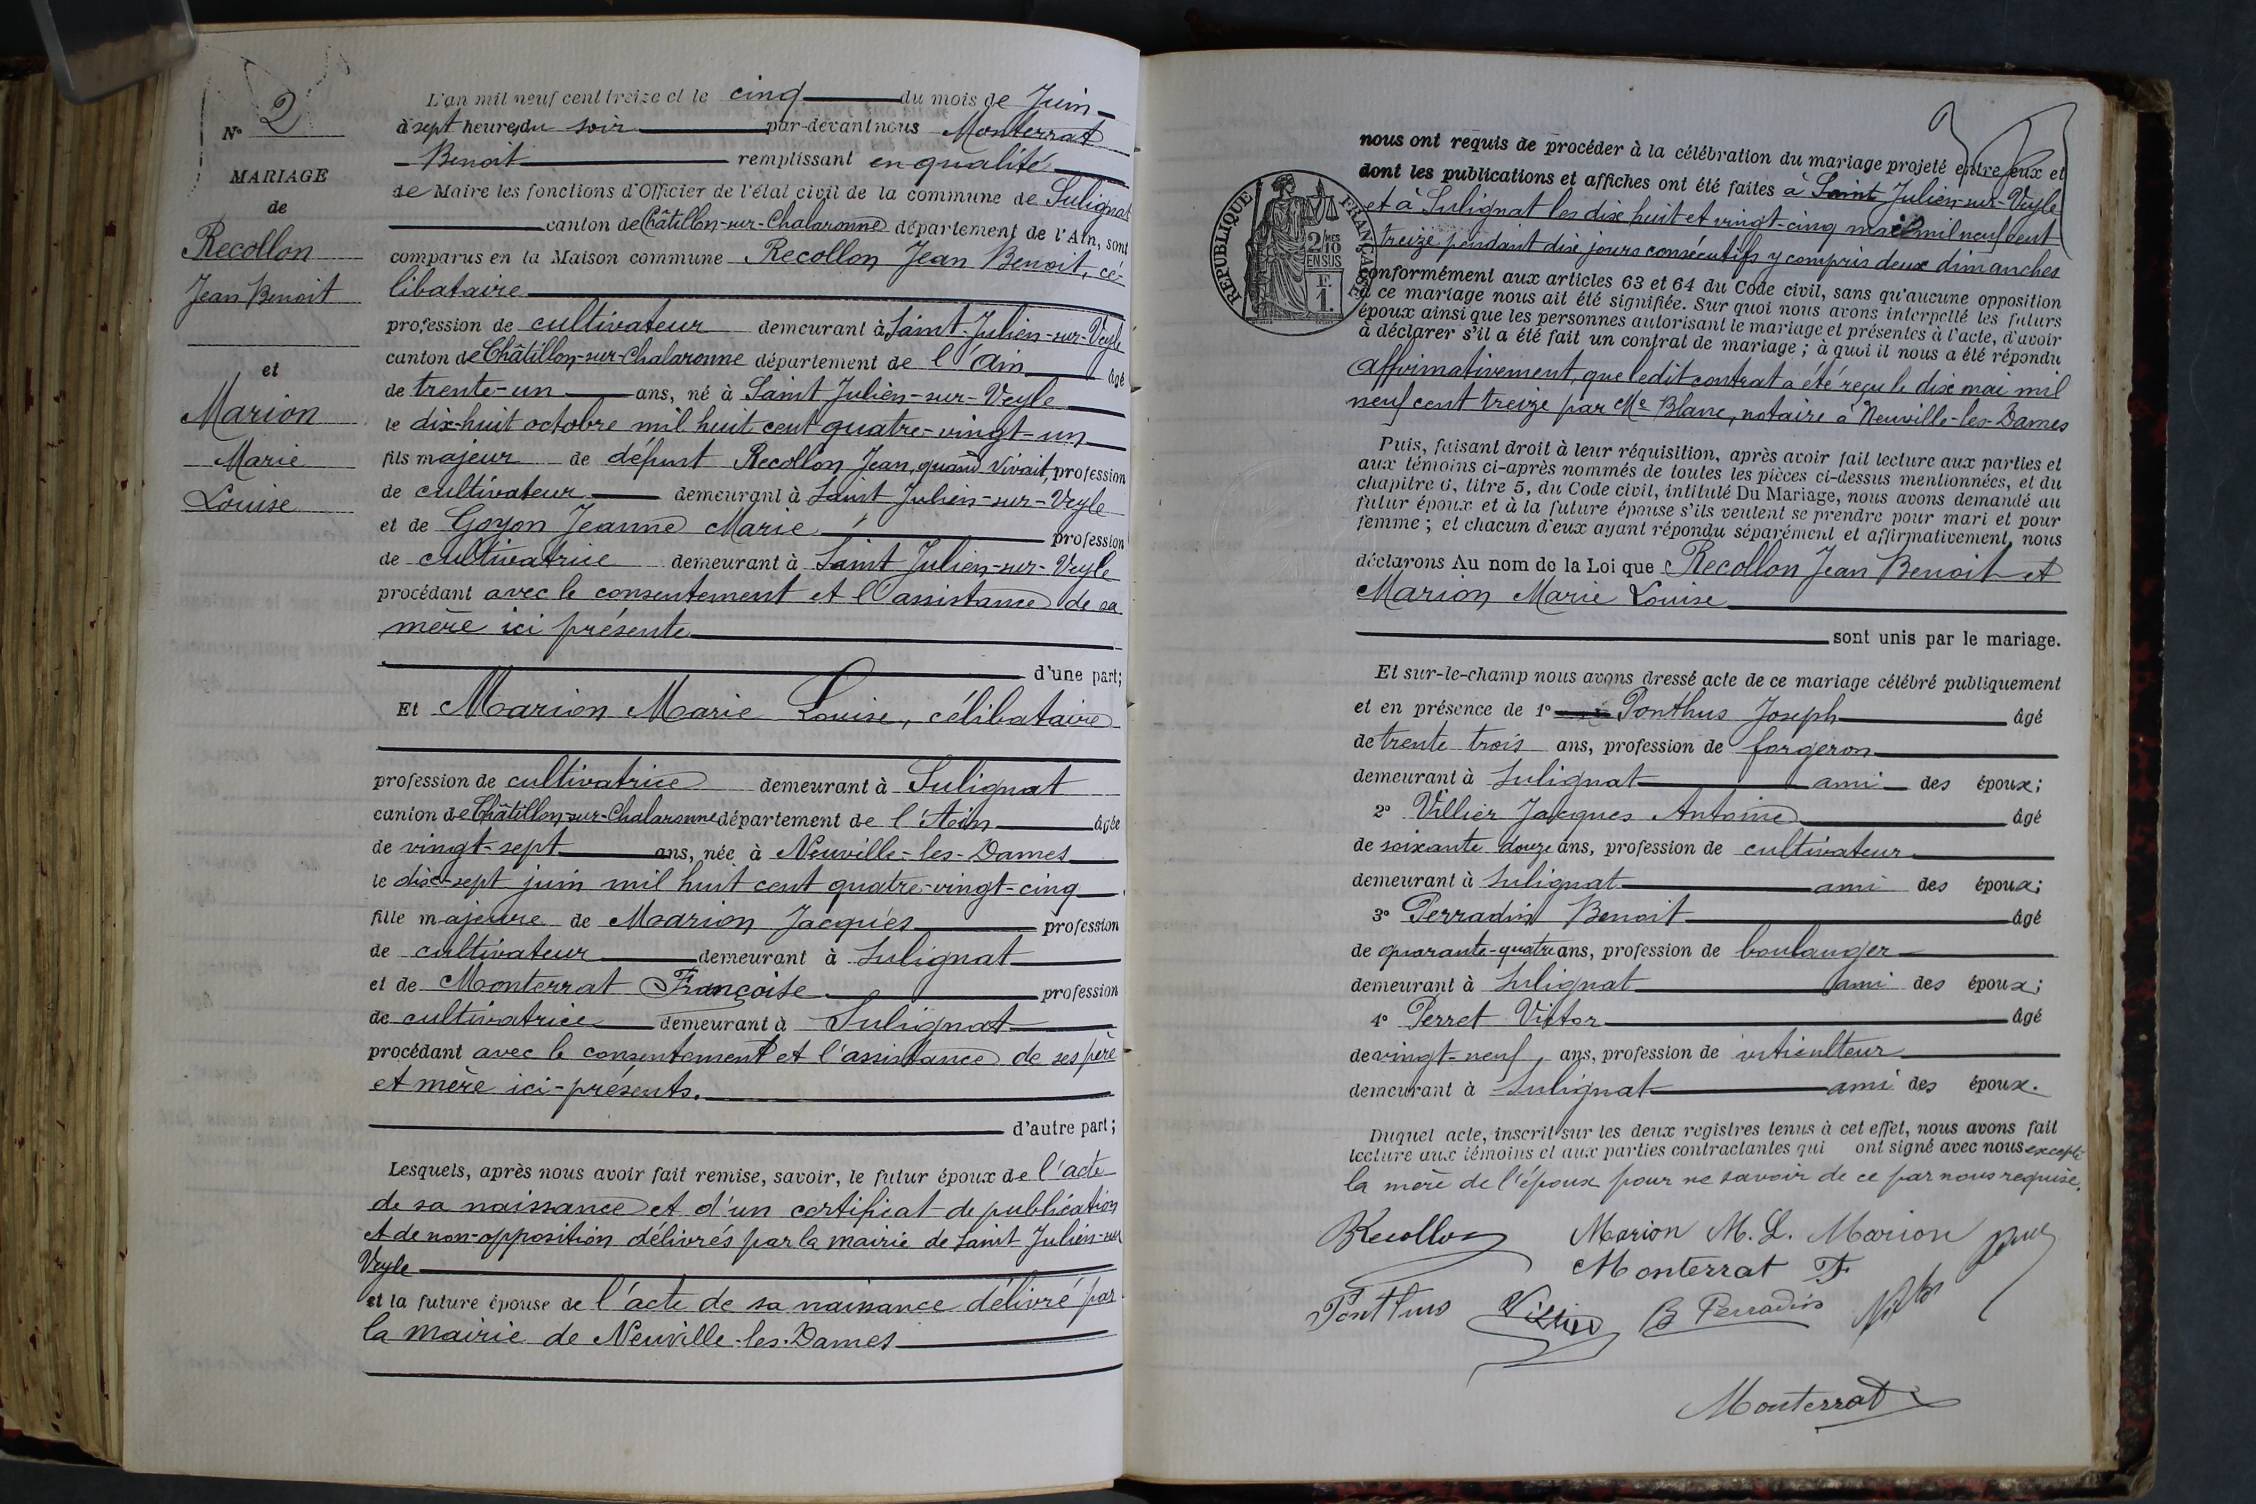 N° 2
MARIAGE
de
Recollon
Jean Benoit
et
Marion
Marie
Louise
L'an mil neuf cent treize et le cinq du mois de Juin
à sept heures du soir par-devant nous Monterrat
Benoit remplissant en qualité
de Maire les fonctions d'Officier de l'état civil de la commune de Sulignat
canton de Châtillon-sur-Chalaronne département de l'Ain, sont
comparus en la Maison commune Recollon Jean Benoit, cé-
libataire
profession de cultivateur demeurant à Saint-Julien-sur-Veyle
canton de Châtillon-sur-Chalaronne département de l'Ain âgé
de trente-un ans, né à Saint Julien-sur-Veyle
le dix-huit octobre mil huit cent quatre-vingt-un
fils majeur de défunt Recollon Jean, quand vivait, profession
de cultivateur demeurant à Saint Julien-sur-Veyle
et de Goyon Jeanne Marie profession
de cultivatrice demeurant à Saint Julien-sur-Veyle
procédant avec le consentement et l'assistance de sa
mère ici présente
d'une part;
Et Marion Marie Louise, célibataire
profession de cultivatrice demeurant à Sulignat
canton de Châtillon-sur-Chalaronne département de l'Ain âgée
de vingt-sept ans, née à Neuville-les-Dames
le dix-sept juin mil huit cent quatre-vingt-cinq
fille majeure de Marion Jacques profession
de cultivateur demeurant à Sulignat
et de Monterrat Françoise profession
de cultivatrice demeurant à Sulignat
procédant avec le consentement et l'assistance de ses père
et mère ici-présents.
d'autre part;
Lesquels, après nous avoir fait remise, savoir, le futur époux de l'acte
de sa naissance et d'un certificat de publication
et de non-opposition délivrés par la mairie de Saint Julien-sur
Veyle
et la future épouse de l'acte de sa naissance délivré par
la mairie de Neuville-les-Dames
RÉPUBLIQUE FRANÇAISE
2/10 MES
EN SUS
F.
1.
nous ont requis de procéder à la célébration du mariage projeté entre eux et
dont les publications et affiches ont été faites à Saint Julien-sur-Veyle
et à Sulignat les dix huit et vingt-cinq mai mil neuf cent
treize pendant dix jours consécutifs y compris deux dimanches
conformément aux articles 63 et 64 du Code civil, sans qu'aucune opposition
à ce mariage nous ait été signifiée. Sur quoi nous avons interpellé les futurs
époux ainsi que les personnes autorisant le mariage et présentes à l'acte, d'avoir
à déclarer s'il a été fait un contrat de mariage; à quoi il nous a été répondu
affirmativement, que ledit contrat a été reçu le dix mai mil
neuf cent treize par Me Blanc, notaire à Neuville-les-Dames
Puis, faisant droit à leur réquisition, après avoir fait lecture aux parties et
aux témoins ci-après nommés de toutes les pièces ci-dessus mentionnées, et du
chapitre 6, titre 5, du Code civil, intitulé Du Mariage, nous avons demandé au
futur époux et à la future épouse s'ils veulent se prendre pour mari et pour
femme; et chacun d'eux ayant répondu séparément et affirmativement, nous
déclarons Au nom de la Loi que Recollon Jean Benoit et
Marion Marie Louise
sont unis par le mariage.
Et sur-le-champ nous avons dressé acte de ce mariage célébré publiquement
et en présence de 1° Ponthus Joseph âgé
de trente trois ans, profession de forgeron
demeurant à Sulignat ami des époux;
2° Villier Jacques Antoine âgé
de soixante douze ans, profession de cultivateur
demeurant à Sulignat ami des époux;
3° Perradin Benoit âgé
de quarante-quatre ans, profession de boulanger
demeurant à Sulignat ami des époux;
4° Perret Victor âgé
de vingt-neuf ans, profession de viticulteur
demeurant à Sulignat ami des époux.
Duquel acte, inscrit sur les deux registres tenus à cet effet, nous avons fait
lecture aux témoins et aux parties contractantes qui ont signé avec nous excepté
la mère de l'époux pour ne savoir de ce par nous requise.
BRecollon Marion M. L. Marion
Monterrat F
Ponthus Villier B Perradin
Monterrat